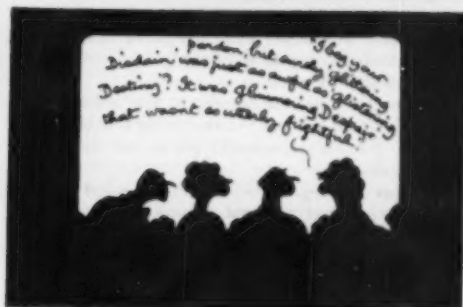 "I beg your
pardon, but surely 'Glittering
Disdain' was just as awful as 'Glistening
Destiny'? It was 'Glimmering Despair'
that wasn't as utterly frightful."